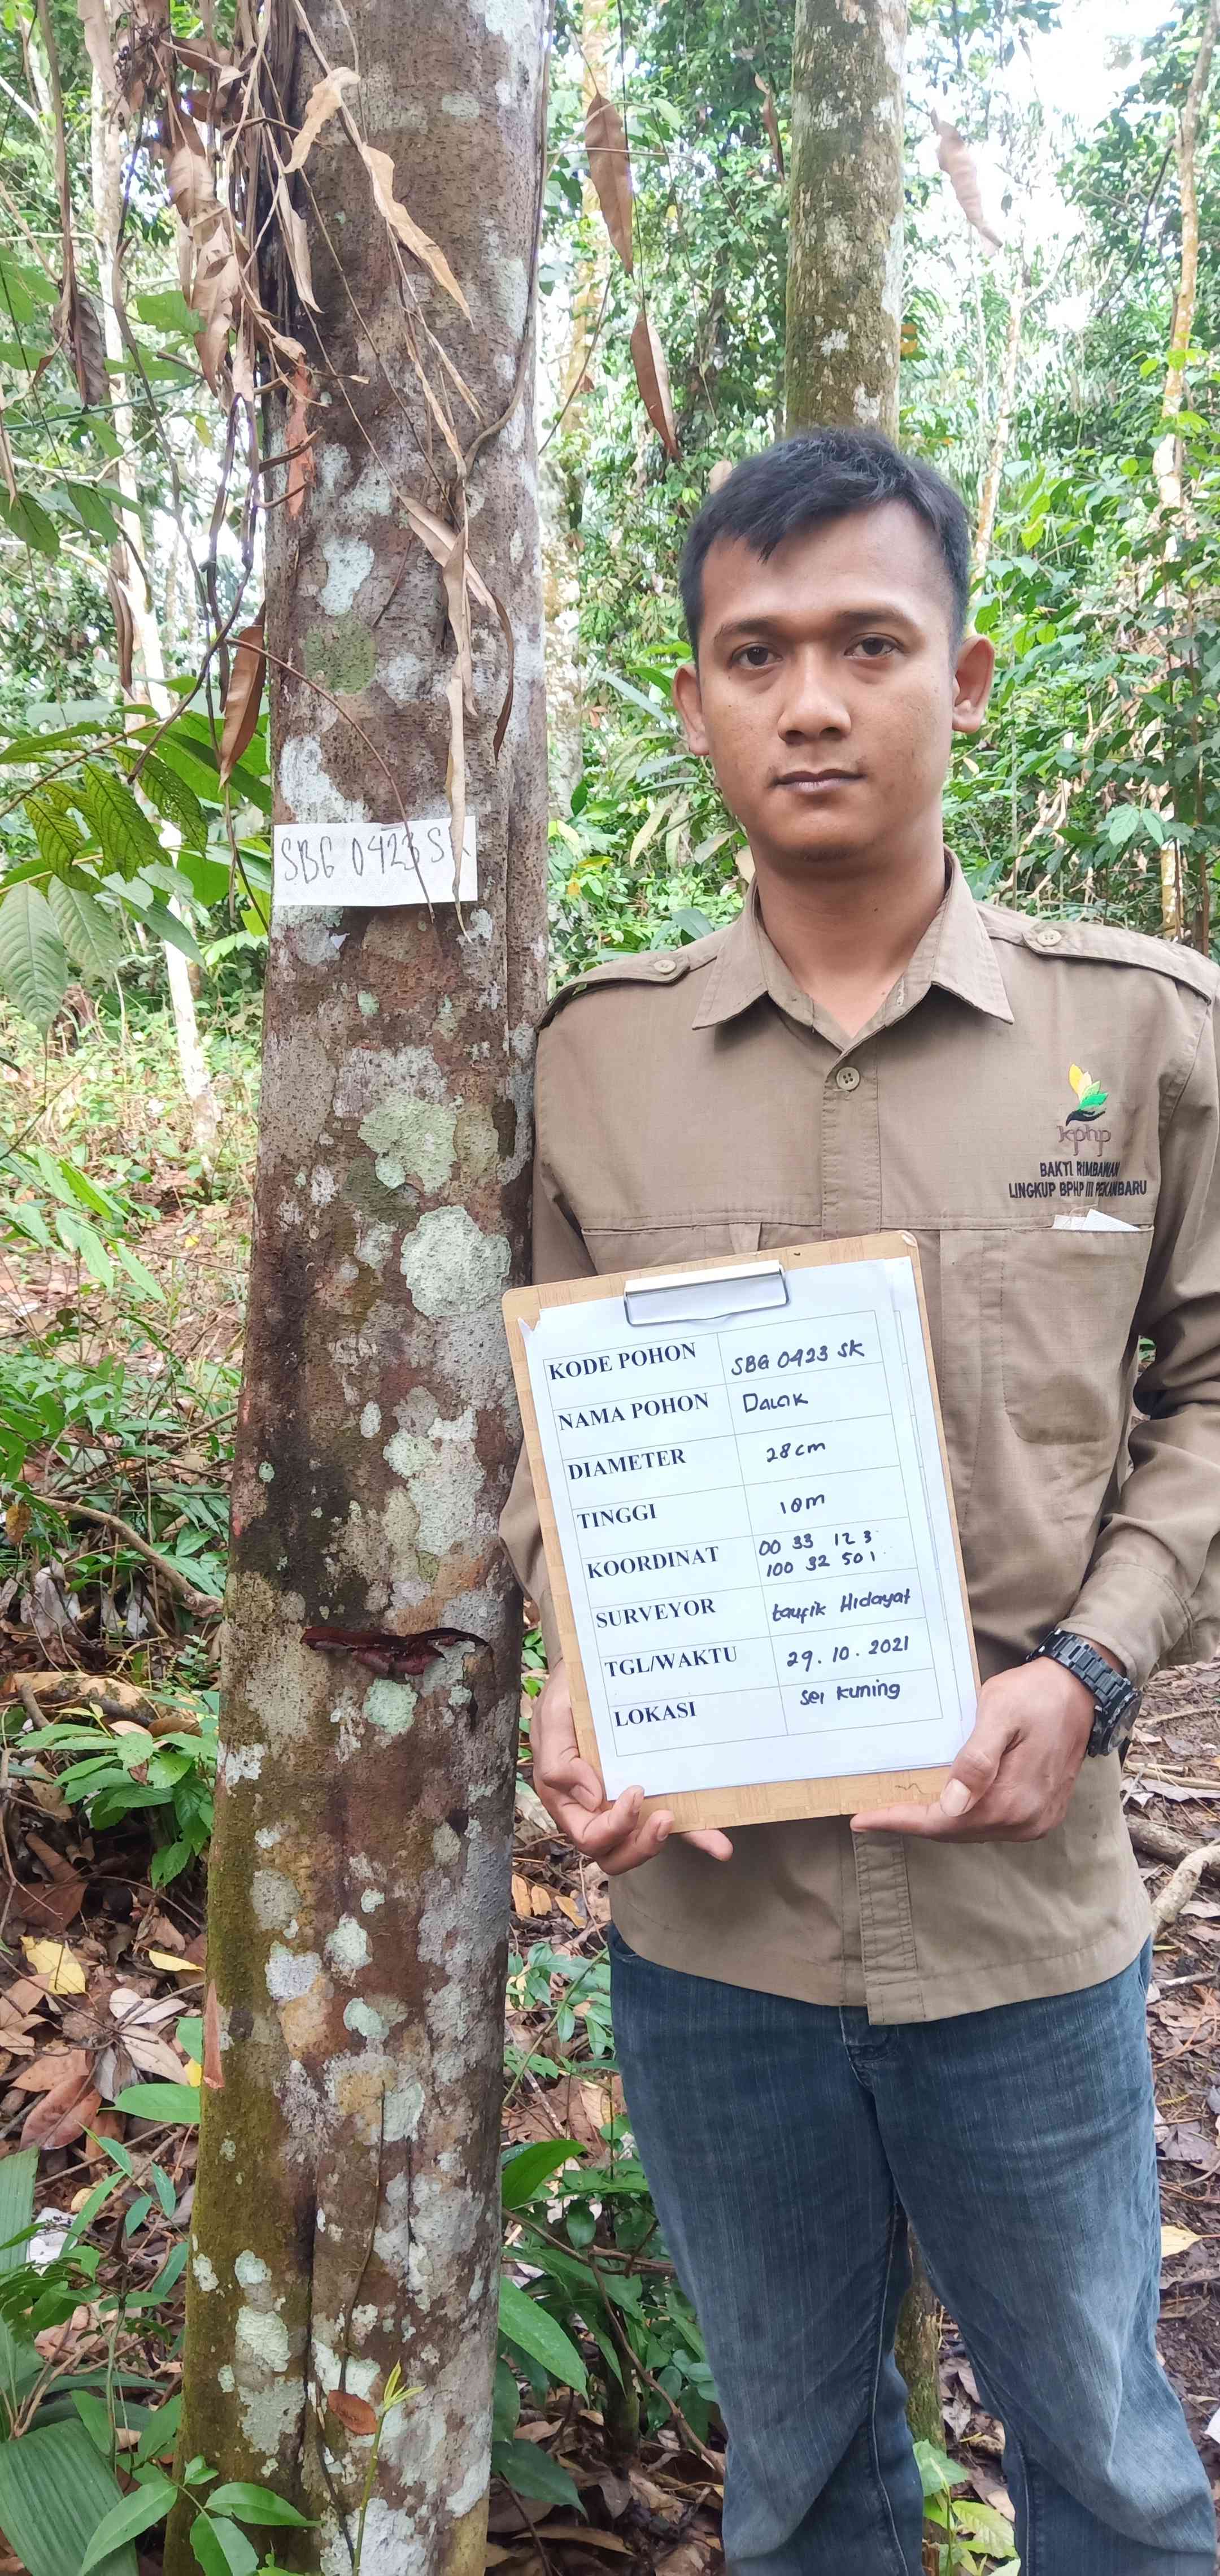 SBG 0423 SK
kphp
BAKTI RIMBAWAN
LINGKUP BPHP III PEKANBARU
KODE POHON SBG 0423 SK
NAMA POHON Dalak
DIAMETER 28 cm
TINGGI 10 m
KOORDINAT 00 33 12 3
100 32 501
SURVEYOR taufik Hidayat
TGL/WAKTU 29.10.2021
LOKASI Sei Kuning